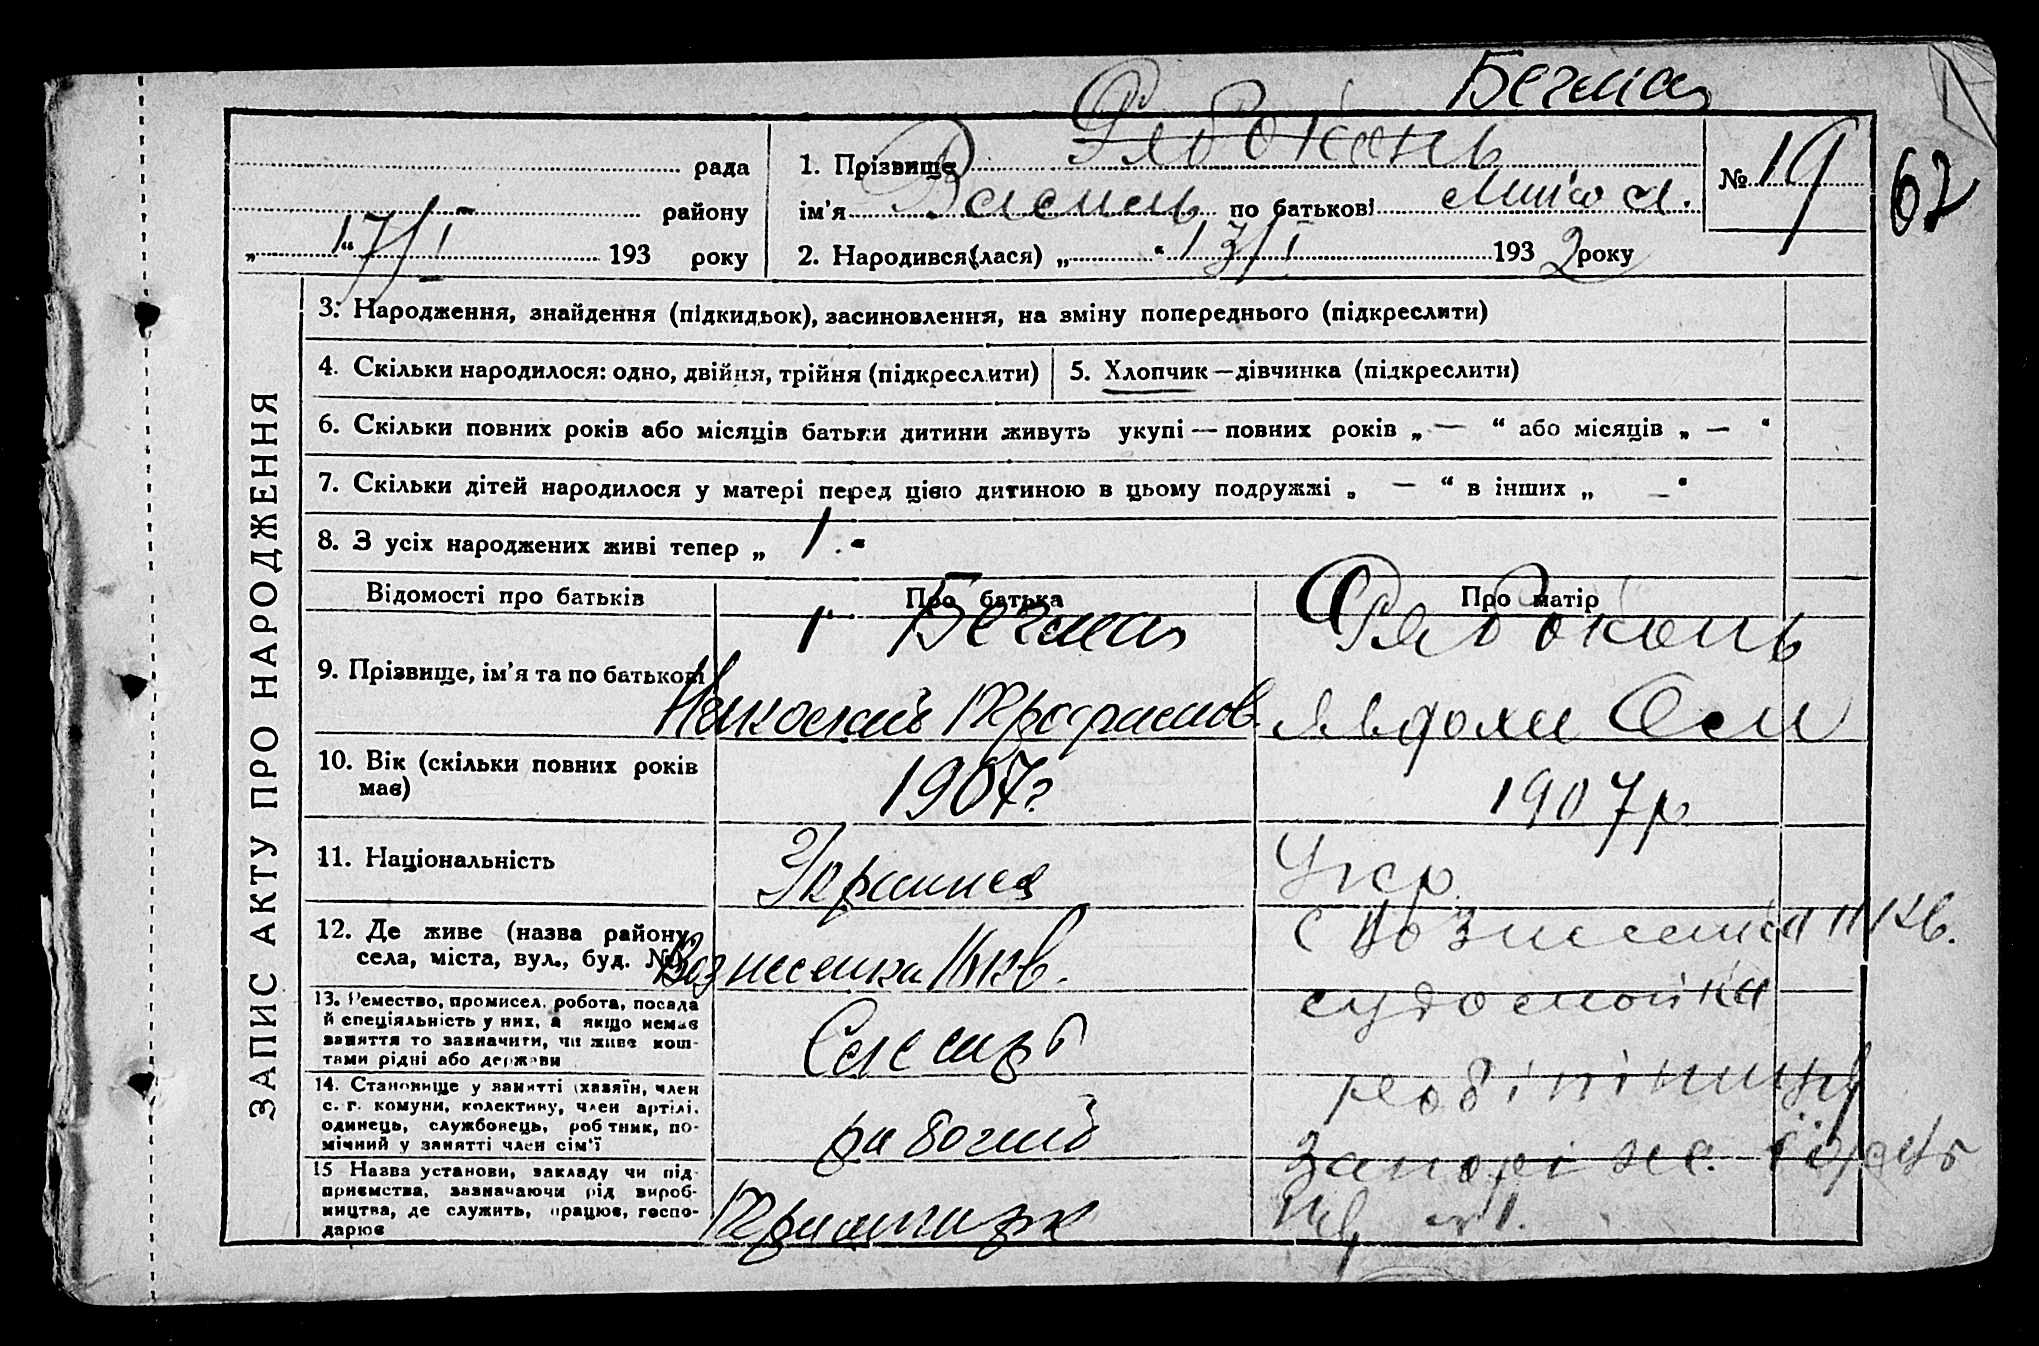 Бегма
рада 1. Прізвище Рябоконь № 19 62
району ім'я Василь по батькові Микол.
„ “ 17/I 193 року 2. Народився(лася) „ “ 13/I 1932 року
ЗАПИС АКТУ ПРО НАРОДЖЕННЯ
3. Народження, знайдення (підкидьок), засиновлення, на зміну попереднього (підкреслити)
4. Скільки народилося: одно, двійня, трійня (підкреслити) 5. Хлопчик—дівчинка (підкреслити)
6. Скільки повних років або місяців батьки дитини живуть укупі — повних років „ — “ або місяців „ — “
7. Скільки дітей народилося у матері перед цією дитиною в цьому подружжі „ — “ в інших „ — “
8. З усіх народжених живі тепер „ 1 . “
Відомості про батьків Про батька Про матір
Бегма Рябоконь
9. Прізвище, ім'я та по батькові
Николай Трофимов. Явдохи Оси
10. Вік (скільки повних років
має) 1907г. 1907р
11. Національність Украинец Укр.
12. Де живе (назва району,
села, міста, вул., буд. №) Вознесенка кв. с Вознесенка 11 кв.
13. Ремество, промисел, робота, посада
й спеціяльність у них, а якщо немає
заняття то зазначити, чи живе кош-
тами рідні або держави
Слесарь судомойка
14. Становище у занятті (хазяїн, член
с.-г. комуни, колективу, член артілі,
одинець, службовець, робітник, по-
мічний у занятті член сім'ї
рабочий робітниця
15 Назва установи, закладу чи під-
приємства, зазначаючи рід вироб-
ництва, де служить, працює, госпо-
дарює
Запоріж.